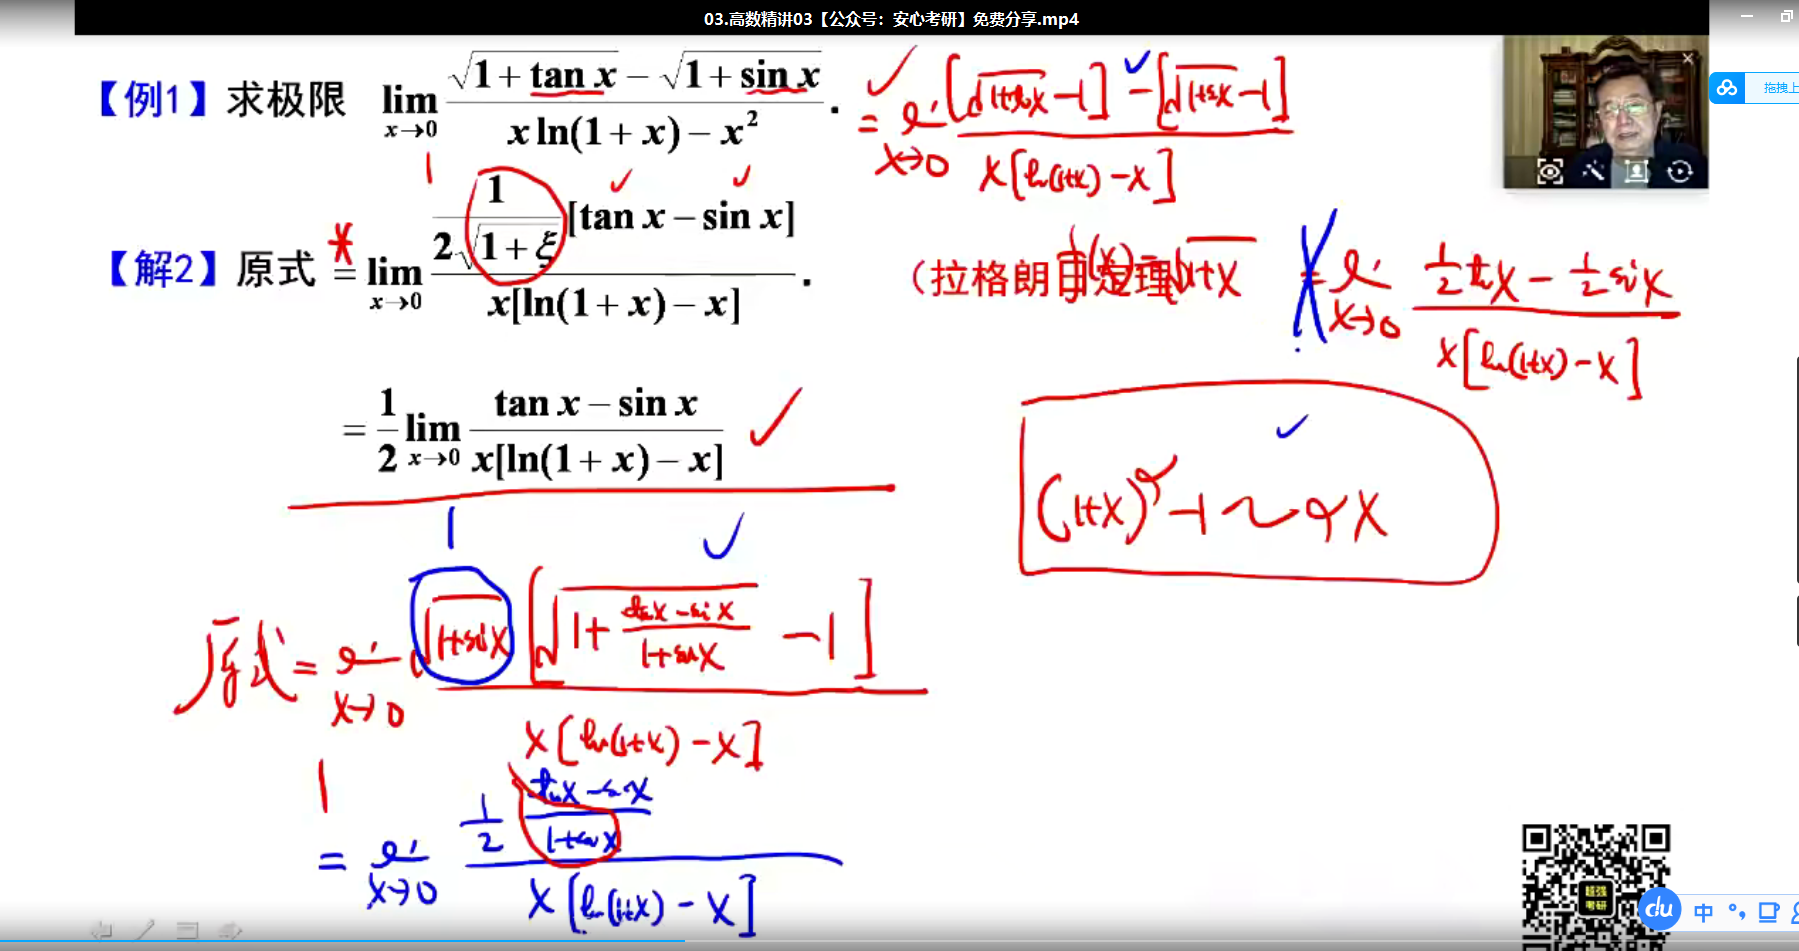 03.高数精讲03【公众号：安心考研】免费分享.mp4
【例1】求极限 lim x→0 (√(1+tan x) − √(1+sin x)) / (x ln(1+x) − x²) .
= lim x→0 ([√(1+tan x) −1] − [√(1+sin x) −1]) / (x[ln(1+x) − x])
【解2】原式 = lim x→0 (1/(2√(1+ξ)) [tan x − sin x]) / (x[ln(1+x) − x]) .
(拉格朗日定理
f(x) = √(1+x)
= lim x→0 (½ tan x − ½ sin x) / (x[ln(1+x) − x])
= 1/2 lim x→0 (tan x − sin x) / (x[ln(1+x) − x])
(1+x)^α −1 ~ αx
原式 = lim x→0 (√(1+sin x) [√(1 + (tan x − sin x)/(1+sin x)) −1]) / (x[ln(1+x) − x])
= lim x→0 (1/2 (tan x − sin x)/(1+sin x)) / (x[ln(1+x) − x])
拖拽上
超强
考研
du 中